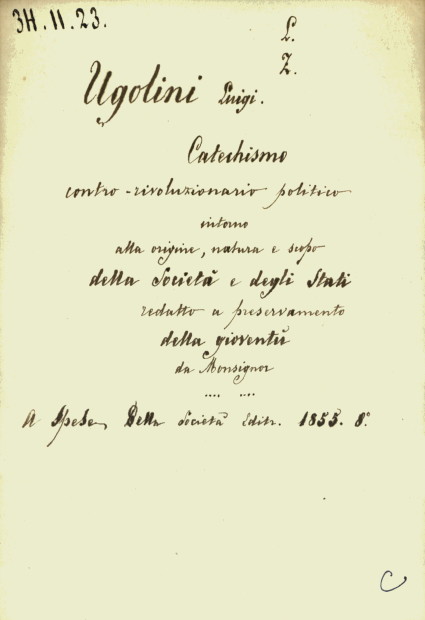 3H.11.23.
L.
Z.
Ugolini Luigi.
Catechismo
contro-rivoluzionario politico
intorno
alla origine, natura e scopo
della Società e degli Stati
redatto a preservamento
della gioventù
da Monsignor
.... ....
A Spese Della Società Editr. 1855. 8°.
C